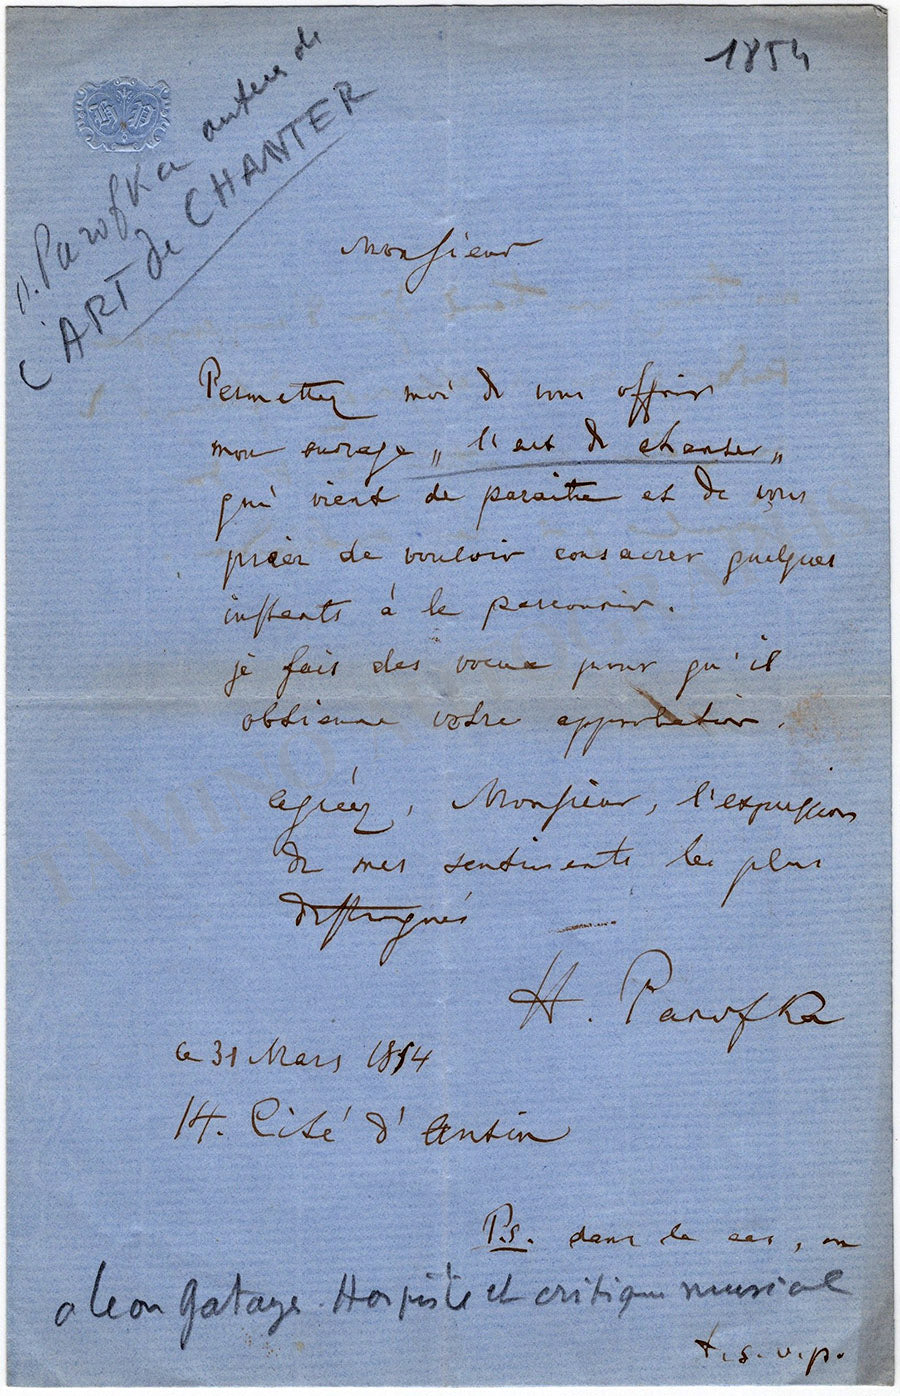 1854
HP
H. Panofka auteur de
L'ART de CHANTER
Monsieur
Permettez moi de vous offrir
mon ouvrage „l'art de chanter„
qui vient de paraitre et de vous
prier de vouloir consacrer quelques
instants à le parcourir.
je fais des voeux pour qu'il
obtienne votre approbation.
agréez, Monsieur, l'expression
de mes sentiments les plus
distingués
H. Panofka
ce 31 Mars 1854
14. Cité d'Antin
P.S. dans le cas, où
a Leon Gatayes Harpiste et critique musical
t.s.v.p.
TAMINO AUTOGRAPHS